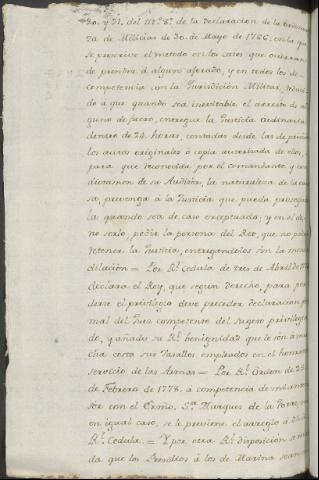 20. y 21. del tit.º 8.º de la declaracion de la Ordenan
za de Milicias de 30. de Mayo de 1766. en la que
se prescrive el metodo en los casos que ocurran
de prender á alguno aforado, y en todos los de
competencia con la Jurisdicion Militar,
do a que quando sea inevitable el arresto de al
guno de fuero, entregue la Justicia ordinaria
dentro de 24. horas, contadas desde las de prision
los autos originales ó copia autorizada de ellos,
para que reconocida por el comandante y con
dictamen de su Auditor, la naturaleza de la cau
sa, prevenga á la Justicia que pueda proseguir
la quando sea de caso exceptuado, y en el de
no serlo, pedir la persona del Reo, que no podrá
detener la Justicia, entregandolos sin la menor
dilacion = Por R.l Cedula de tres de Abril de
declara el Rey, que segun derecho, para per
derse el privilegio deve preceder declaracion for
mal del Juez competente del sugeto privilegia
do, y añade su R.l benignidad que le son á mu
cha costa sus Vasallos empleados en el honroso
servicio de las Armas = Por R.l Orden de 25
de Febrero de 1778. á competencia de mi antece
sor con el Exmo. S.or Marques de la Torre,
en igual caso, se le previene el arreglo á dicha
R.l Cedula. = Y por otra R.l disposicion se man
da que los Presidios á los de Marina sean